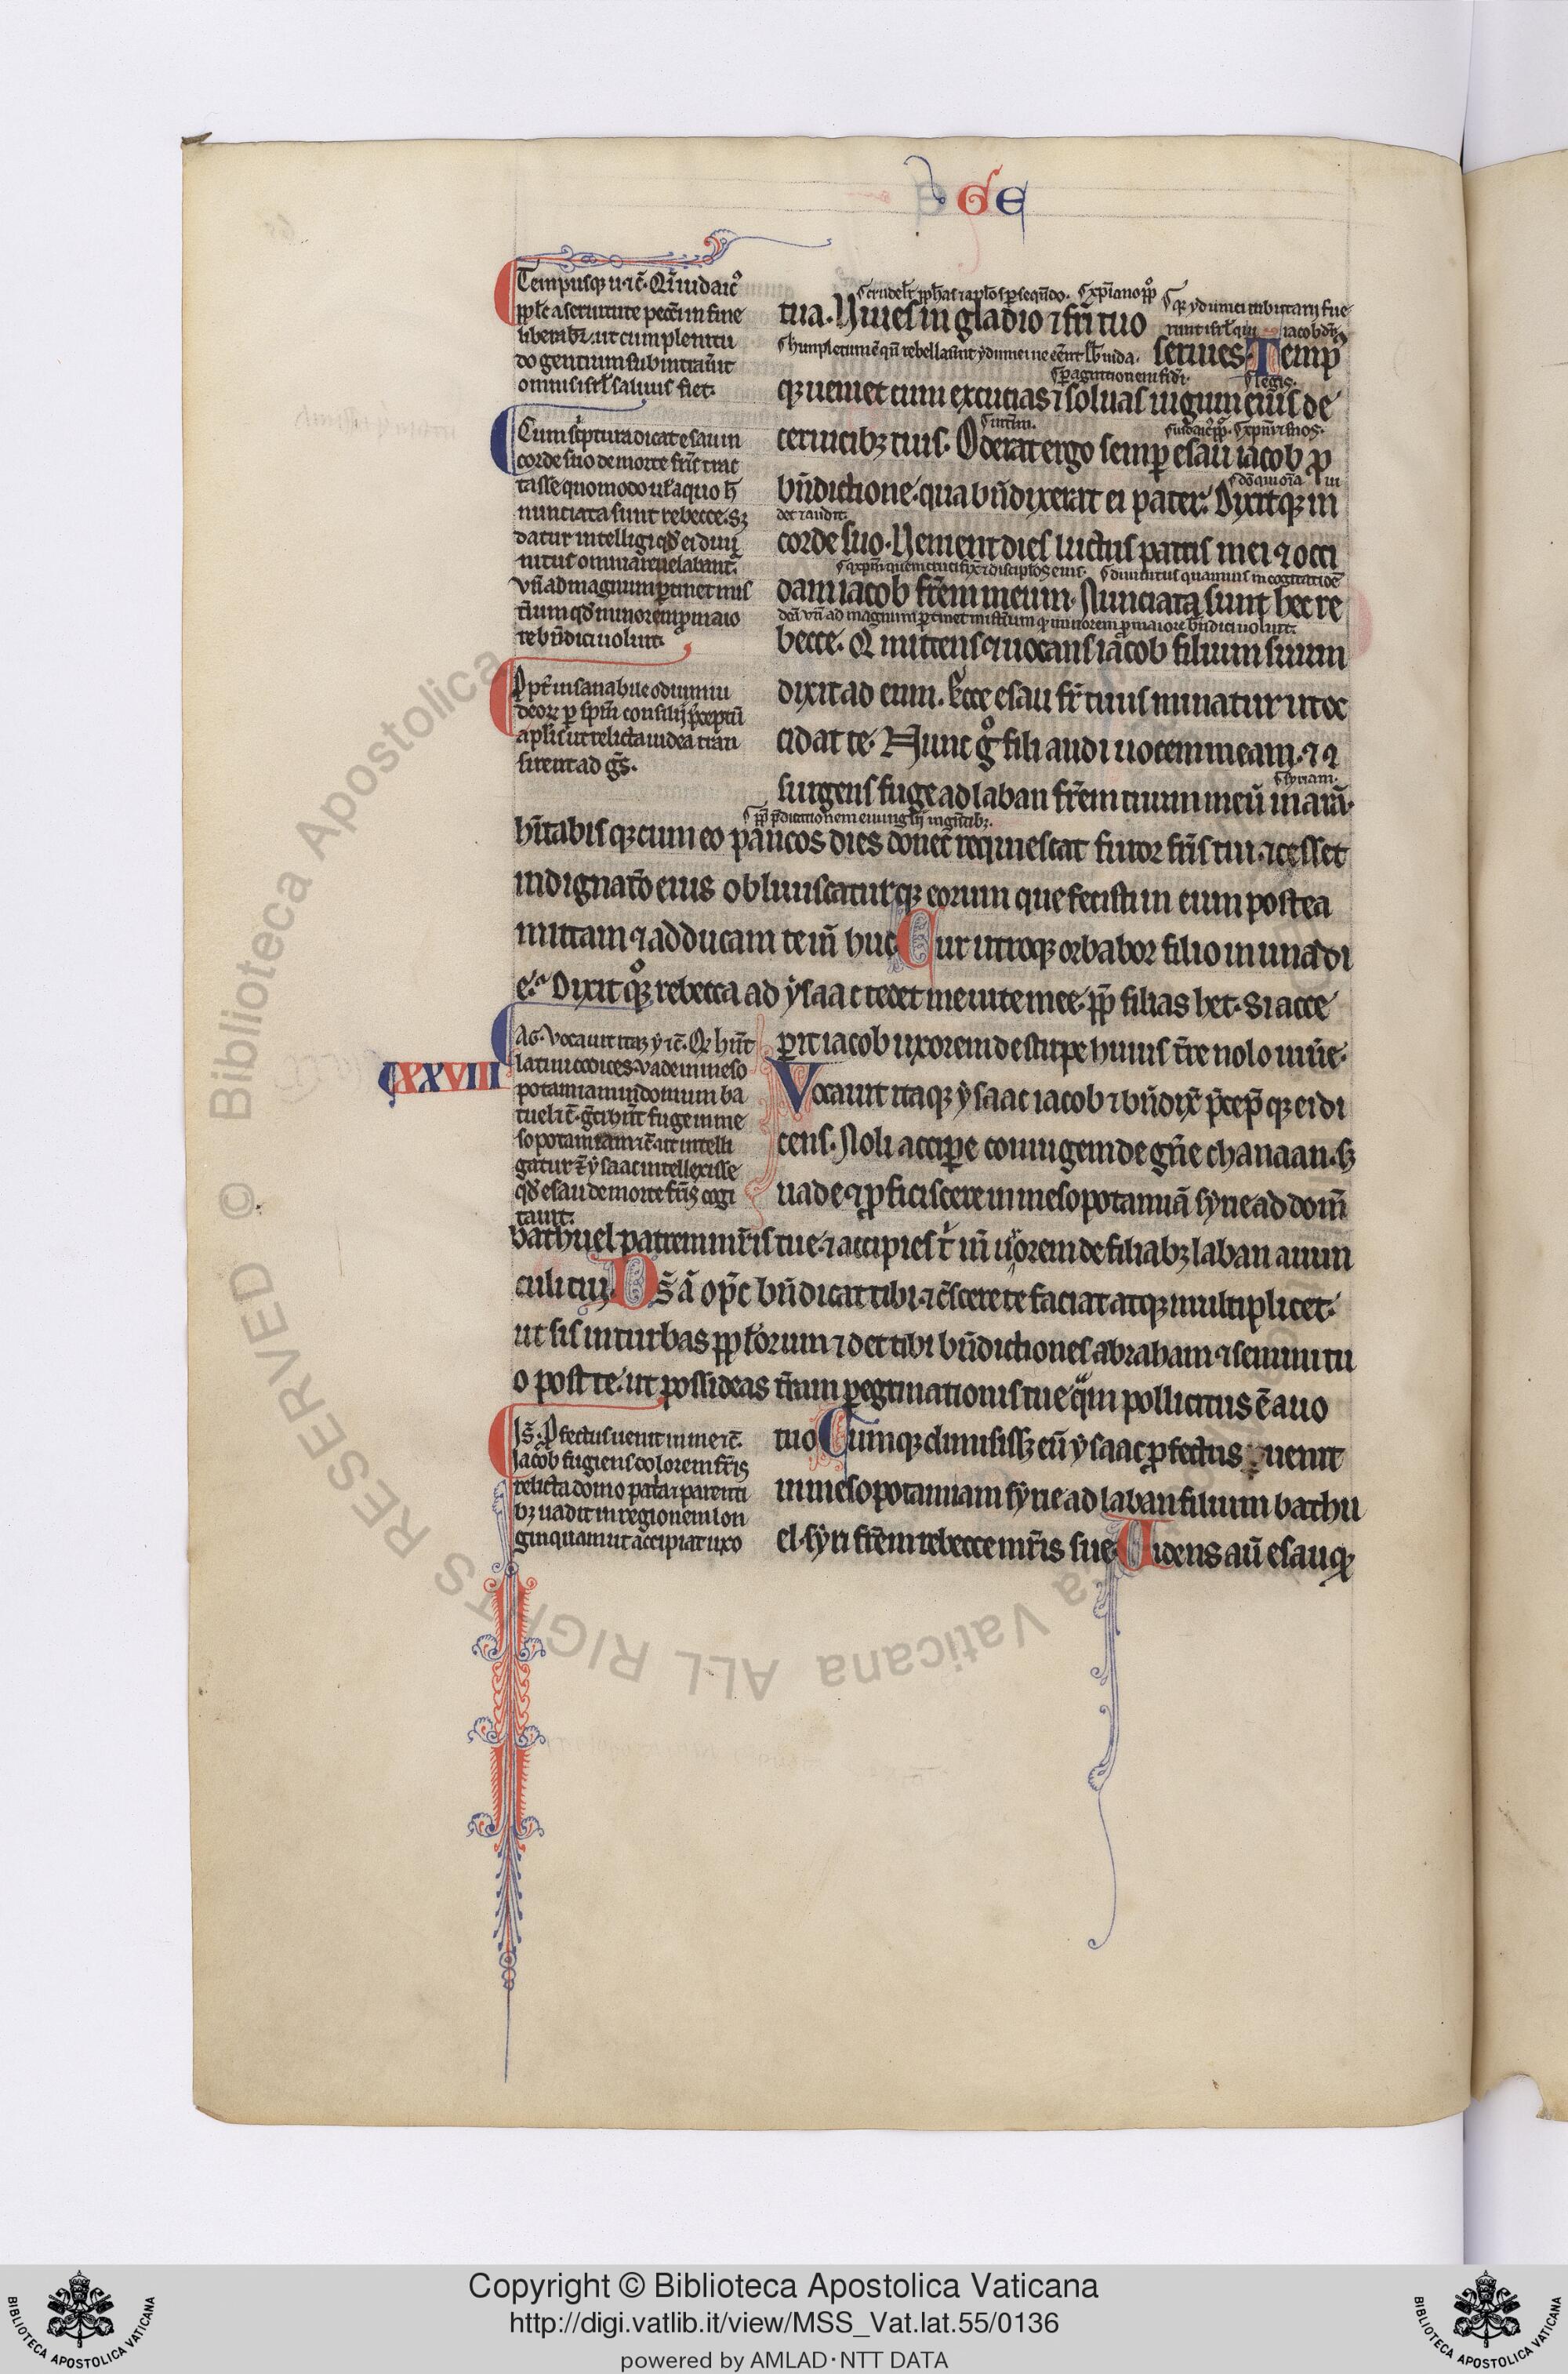 GE
Tempusq; u. ⁊c̄. Qr̄ iudaic⁹
ppl̄s a seruitute peccati in fine
liberabit᷑. ut cum plenitu
do gentium subintrau̅it
omnis isrl̄ saluus fiet.
Cum sc̄ptura dicat esau in
corde suo de morte fr̄is trac
tasse quomodo ul̄ a quo h̄
nunciata sunt rebecce. s;
datur intelligi qd̄ ei diui
nitus omnia reuelabant᷑.
vn̄ ad magnum ꝑtinet mis
t̄ium qd̄ minorem ꝓ maio
re bn̄dici uoluit.
Ppt̄ insanabile odium iu
deoꝝ ꝑ spm̄ consilij p̄ceptū
aplis ut relicta iudea tran
sirent ad gēs.
tua. Viues in gladio ⁊ fr̄i tuo
seruies. Temp
q; ueniet cum excutias ⁊ soluas iugum eius de
ceruicib; tuis. Oderat ergo semꝑ esau iacob ꝓ
bn̄dictione. qua bn̄dixerat ei pater. Dixitq; in
corde suo. Venient dies luctus patris mei ⁊ occi
dam iacob fr̄em meum. Nunciata sunt hec re
becce. Q mittens ⁊ uocans iacob filium suum
dixit ad eum. Ecce esau fr̄ tuus minatur ut oc
cidat te. Nunc gͦ fili audi uocem meam. ⁊ ⁊
surgens fuge ad laban fr̄em tuum meū in arā.
hītabisq; cum eo paucos dies donec requiescat furor fr̄is tui. ⁊ cesset
indignatō eius obliuiscaturq; eorum que fecisti in eum postea
mittam ⁊ adducam te in̄ huc Cur utroq; orbabor filio in una di
e. Dixitq; rebecca ad ysaac tedet me uite mee. ppt̄ filias het. Si acce
XXVIII
Ac. Vocauit itaq; y ⁊c̄. Qr̄ hn̄t
latini codices. vade in meso
potamiam in domum ba
tuel ⁊c̄. gͨi hn̄t fuge in me
sopotamiam ⁊c̄. ut intelli
gatur ꝙ ysaac intellexisse
qd̄ esau de morte fr̄is cogi
tauit.
ꝑit iacob uxorem de stirpe huius t̄re nolo uiu̅e.
Vocauit itaq; ysaac iacob ⁊ bn̄dix̄ p̄cep̄q; ei di
cens. Noli accipe coniugem de gn̄e chanaan. s;
uade ⁊ ꝓficiscere in mesopotamiā syrie ad domū
bathuel patrem mr̄is tue. ⁊ accipies t̄ in̄ uxorem de filiab; laban auun
culi tui. Ds̄ ā op̄s bn̄dicat tibi. ⁊ cͤscere te faciat atq; multiplicet.
ut sis in turbas pplo̅rum ⁊ det tibi bn̄dictiones abraham. ⁊ semini tu
o post te. ut possideas t̄ram ꝑegrinationis tue quā pollicitus ē auo
Is. Pfectus uenit in me ⁊c̄.
Iacob fugiens dolorem fr̄is
relicta domo patria ⁊ parenti
b; uadit in regionem lon
ginquam ut accipiat uxo
tuo Cumq; dimisiss; eū ysaac ꝓfectus uenit
in mesopotamiam syrie ad laban filium bathu
el. syri fr̄em rebecce mr̄is sue. Videns aū esau qꝫ
Copyright © Biblioteca Apostolica Vaticana
http://digi.vatlib.it/view/MSS_Vat.lat.55/0136
powered by AMLAD·NTT DATA
BIBLIOTECA APOSTOLICA VATICANA
BIBLIOTECA APOSTOLICA VATICANA
© Biblioteca Apostolica Vaticana ALL RIGHTS RESERVED